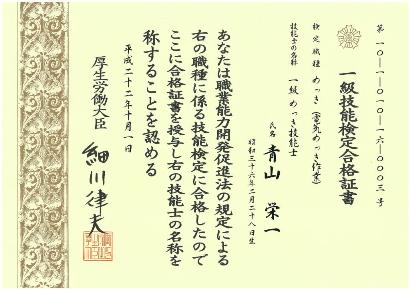 第一〇-一-〇一〇-一六-〇〇〇三号
一級技能検定合格証書
検定職種 めっき(電気めっき作業)
技能士の名称 一級めっき技能士
氏名 青山 栄一
昭和三十六年二月二十八日生
あなたは職業能力開発促進法の規定による
右の職種に係る技能検定に合格したので
ここに合格証書を授与し右の技能士の名称を
称することを認める
平成二十二年十月一日
厚生労働大臣
細川律夫